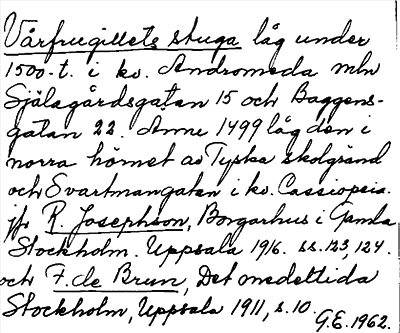 Vårfrugillets stuga låg under
1500-t. i kv. Andromeda mln
Själagårdsgatan 15 och Baggens-
gatan 22. Anno 1499 låg den i
norra hörnet av Tyska skolgränd
och Svartmangatan i kv. Cassiopeia.
jfr R. Josephson, Borgarhus i Gamla
Stockholm. Uppsala 1916. ss. 123, 124.
och F. de Brun, Det medeltida
Stockholm, Uppsala 1911, s. 10.
G.E. 1962.